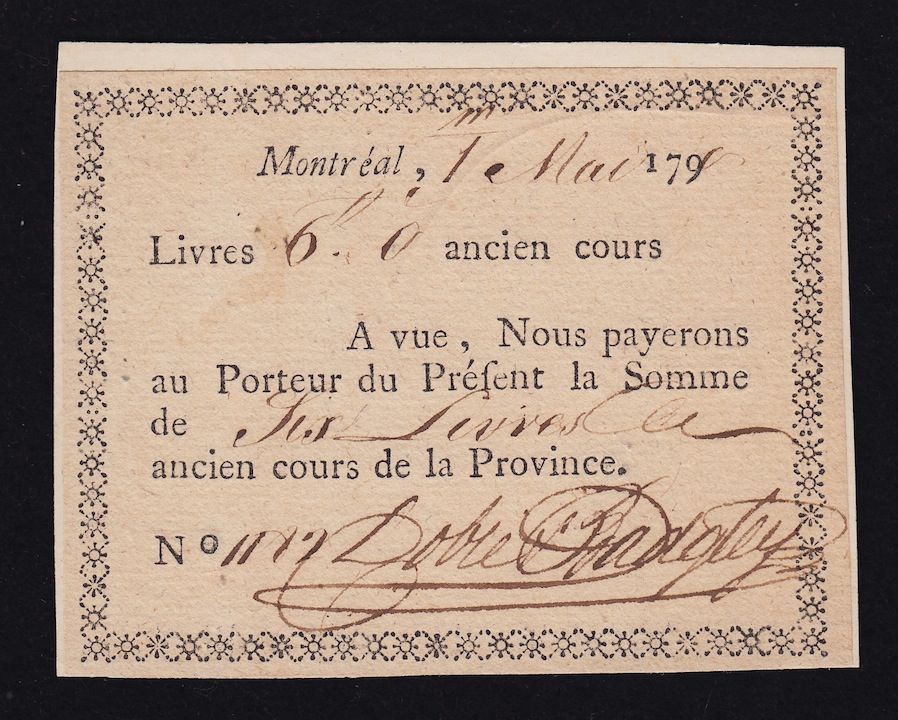 Montréal, 1 Mai 179
Livres 6 0 ancien cours
A vue, Nous payerons
au Porteur du Préſent la Somme
de Six Livres
ancien cours de la Province.
No Dobie & Badgley